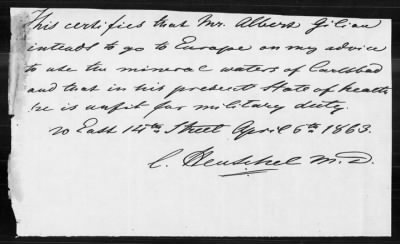 This certifies that Mr. Albert Gilian
intends to go to Europe on my advice
to use the mineral waters of Carlsbad
and that in his present state of health
he is unfit for military duty.
20 East 14th Street April 6th 1863.
C. Heuschel M.D.